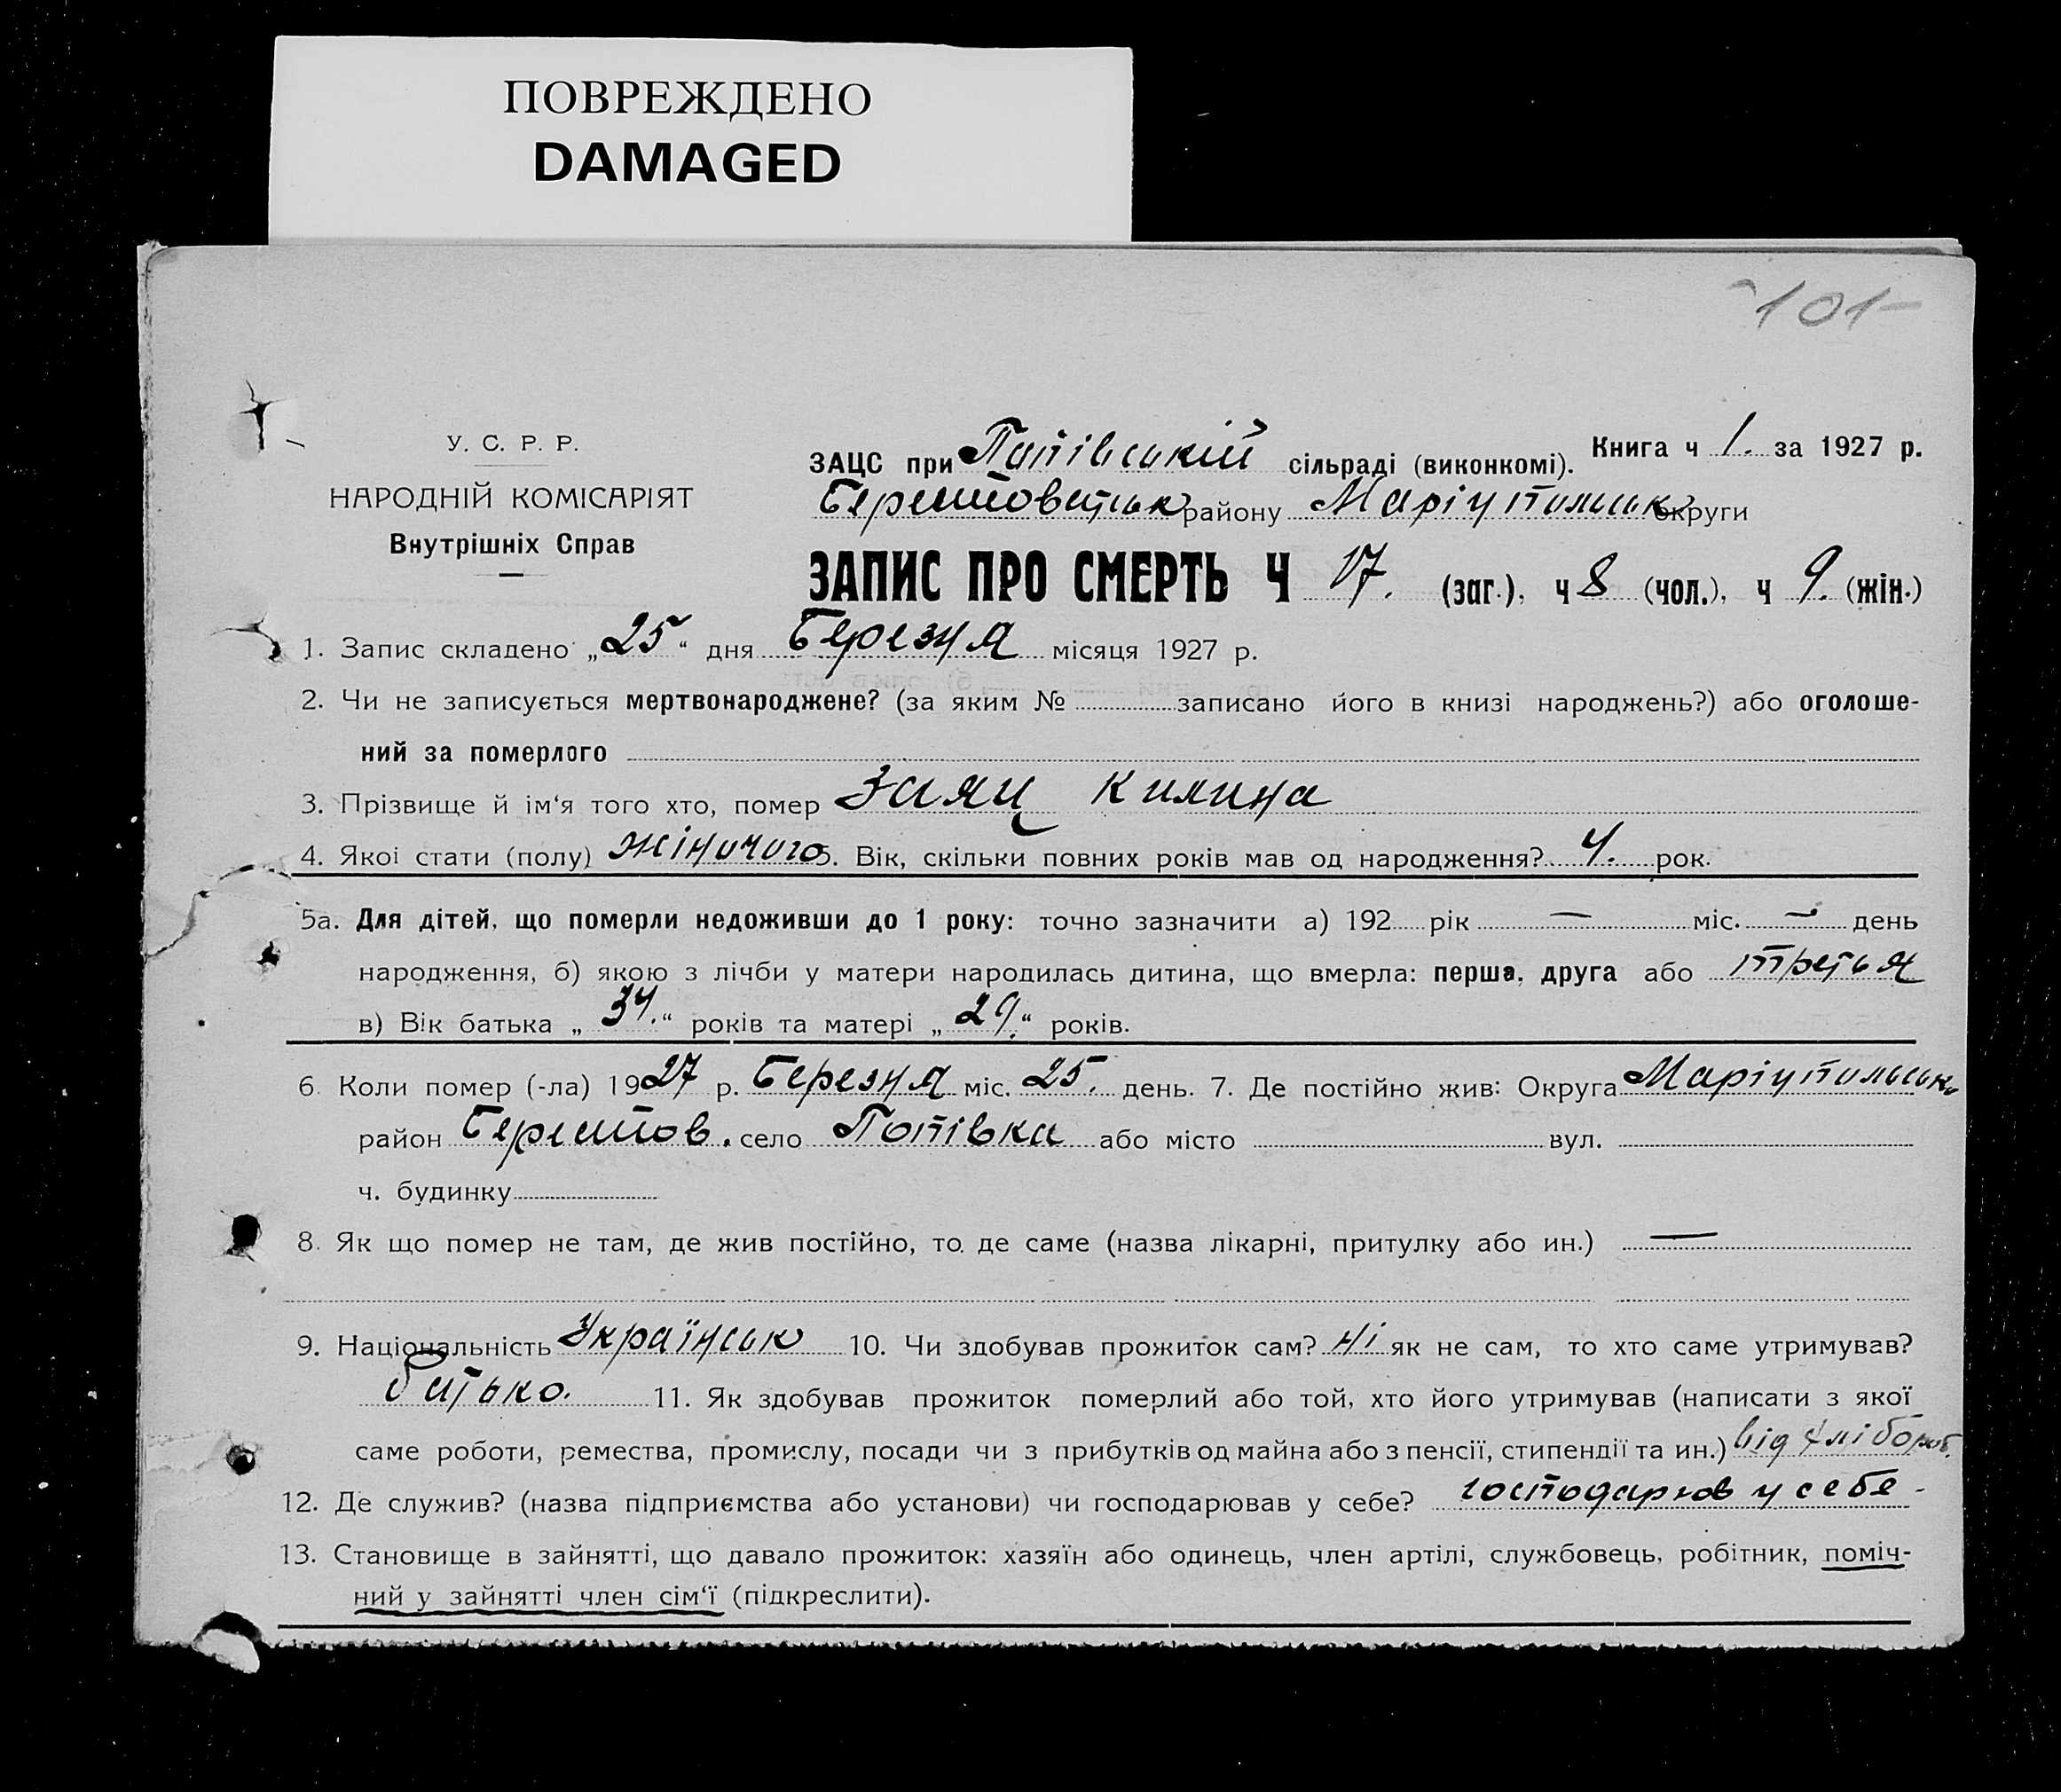 ПОВРЕЖДЕНО
DAMAGED
101
У. С. Р. Р.
НАРОДНІЙ КОМІСАРІЯТ
Внутрішніх Справ
ЗАЦС при Попівській сільраді (виконкомі). Книга ч 1. за 1927 р.
Берестоватськ району Маріупольськ округи
ЗАПИС ПРО СМЕРТЬ Ч 17. (заг.), ч 8 (чол.), ч 9. (жін.)
1. Запис складено „25“ дня Березня місяця 1927 р.
2. Чи не записується мертвонароджене? (за яким № записано його в книзі народжень?) або оголоше-
ний за померлого
3. Прізвище й ім‘я того хто, помер Заяц Килина
4. Якоі стати (полу) жіночого 5. Вік, скільки повних років мав од народження? 4. рок.
5а. Для дітей, що померли недоживши до 1 року: точно зазначити а) 192 рік — міс. — день
народження, б) якою з лічби у матери народилась дитина, що вмерла: перша, друга або третья
в) Вік батька „34.“ років та матері „29.“ років.
6. Коли помер (-ла) 1927 р. Березня міс. 25. день. 7. Де постійно жив: Округа Маріупольськ
район Берестов. село Попівка або місто вул.
ч. будинку
8. Як що помер не там, де жив постійно, то де саме (назва лікарні, притулку або ин.) —
9. Національність Українськ 10. Чи здобував прожиток сам? ні як не сам, то хто саме утримував?
батько. 11. Як здобував прожиток померлий або той, хто його утримував (написати з якої
саме роботи, ремества, промислу, посади чи з прибутків од майна або з пенсії, стипендії та ин.) від хлібороб.
12. Де служив? (назва підприємства або установи) чи господарював у себе? господарюв у себе -
13. Становище в зайнятті, що давало прожиток: хазяїн або одинець, член артілі, службовець, робітник, поміч-
ний у зайнятті член сім‘ї (підкреслити).